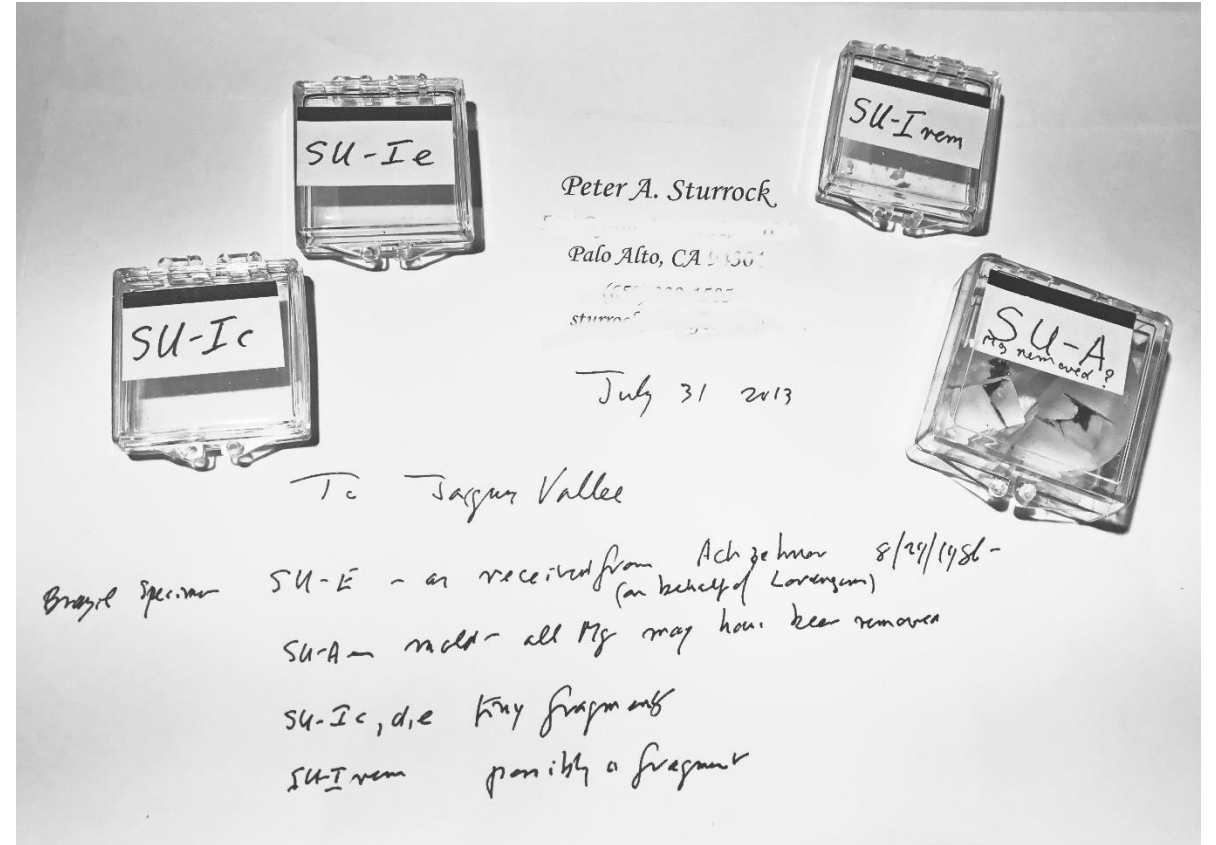 SU-Ie
SU-I rem
SU-Ic
SU-A
Mg removed?
Peter A. Sturrock
Palo Alto, CA
July 31 2013
To Jacques Vallee
Brazil Specimen SU-E - as received from 8/29/1986 -
(on behalf of Lorenzen)
SU-A - mold - all Mg may have been removed
SU-Ic, d, e tiny fragments
SU-I rem possibly a fragment